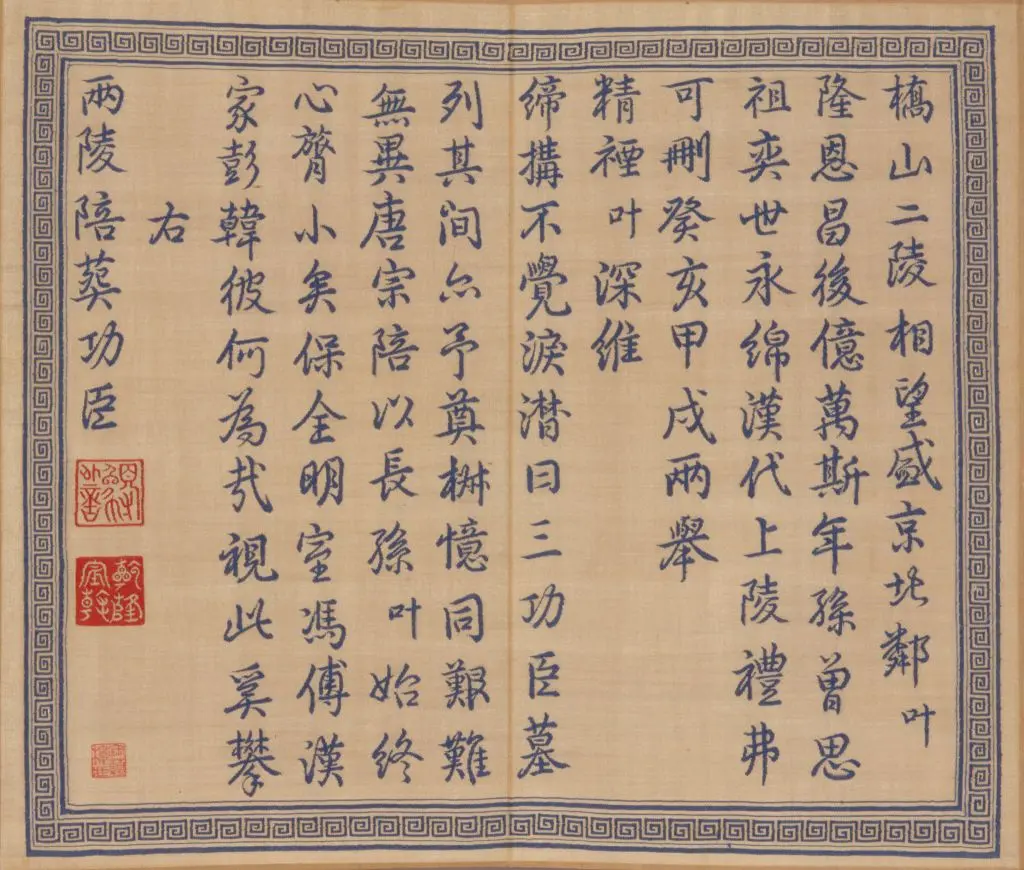 橋山二陵相望盛京北鄰叶
隆恩昌後億萬斯年孫曾思
祖奕世永綿漢代上陵禮弗
可刪癸亥甲戌兩舉
精禋叶深維
締搆不覺淚潸曰三功臣墓
列其间亦予奠椒憶同艱難
無異唐宗陪以長孫叶始終
心膂小矣保全明室馮傅漢
家彭韓彼何為哉視此奚攀
右
兩陵陪葬功臣
乾隆宸翰